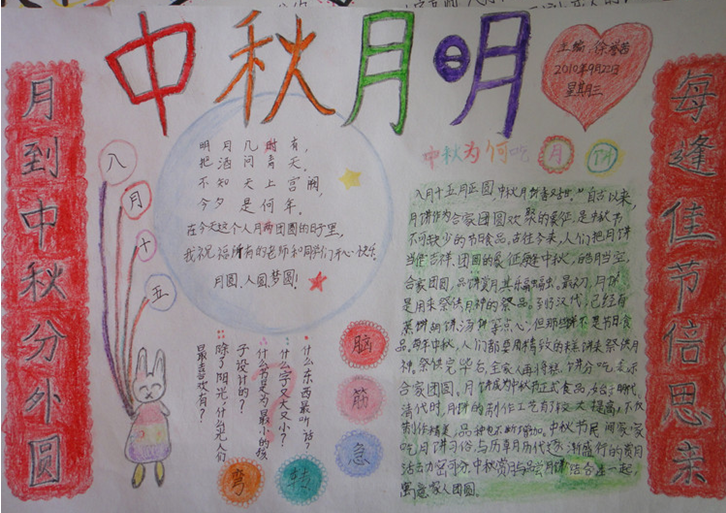 中秋月明
主编：徐
2010年9月22日
星期三
月到中秋分外圆
每逢佳节倍思亲
八
月
十
五
明月几时有，
把酒问青天。
不知天上宫阙，
今夕是何年。
在今天这个人月两团圆的日子里，
我祝福所有的老师和同学们开心快乐。
月圆、人圆、梦圆！
中秋为何吃月饼
八月十五月正圆，中秋月饼香又甜。"自古以来，
月饼作为合家团圆欢聚的象征，是中秋节
不可缺少的节日食品。古往今来，人们把月饼
当作吉祥、团圆的象征。每逢中秋，皓月当空，
合家团圆，品饼赏月，其乐融融。最初，月饼
是用来祭供月神的祭品。到了汉代，已经有
蒸饼、胡饼、汤饼等点心，但那些都不是节日食
品。每年中秋，人们都要用精致的糕饼来祭供月
神。祭供完毕后，全家人再将糕饼分吃，表示
合家团圆。月饼成为中秋节正式食品，始于明代。
清代时，月饼的制作工艺有了较大提高，不仅
制作精美，品种也不断增加。中秋节民间家家
吃月饼习俗，与历
寓意家人团圆。
脑
筋
急
转
弯
什么东西最听话？
什么字又大又小？
什么书是为最小的孩
子设计的？
除了阳光，什么光人们
最喜欢有？